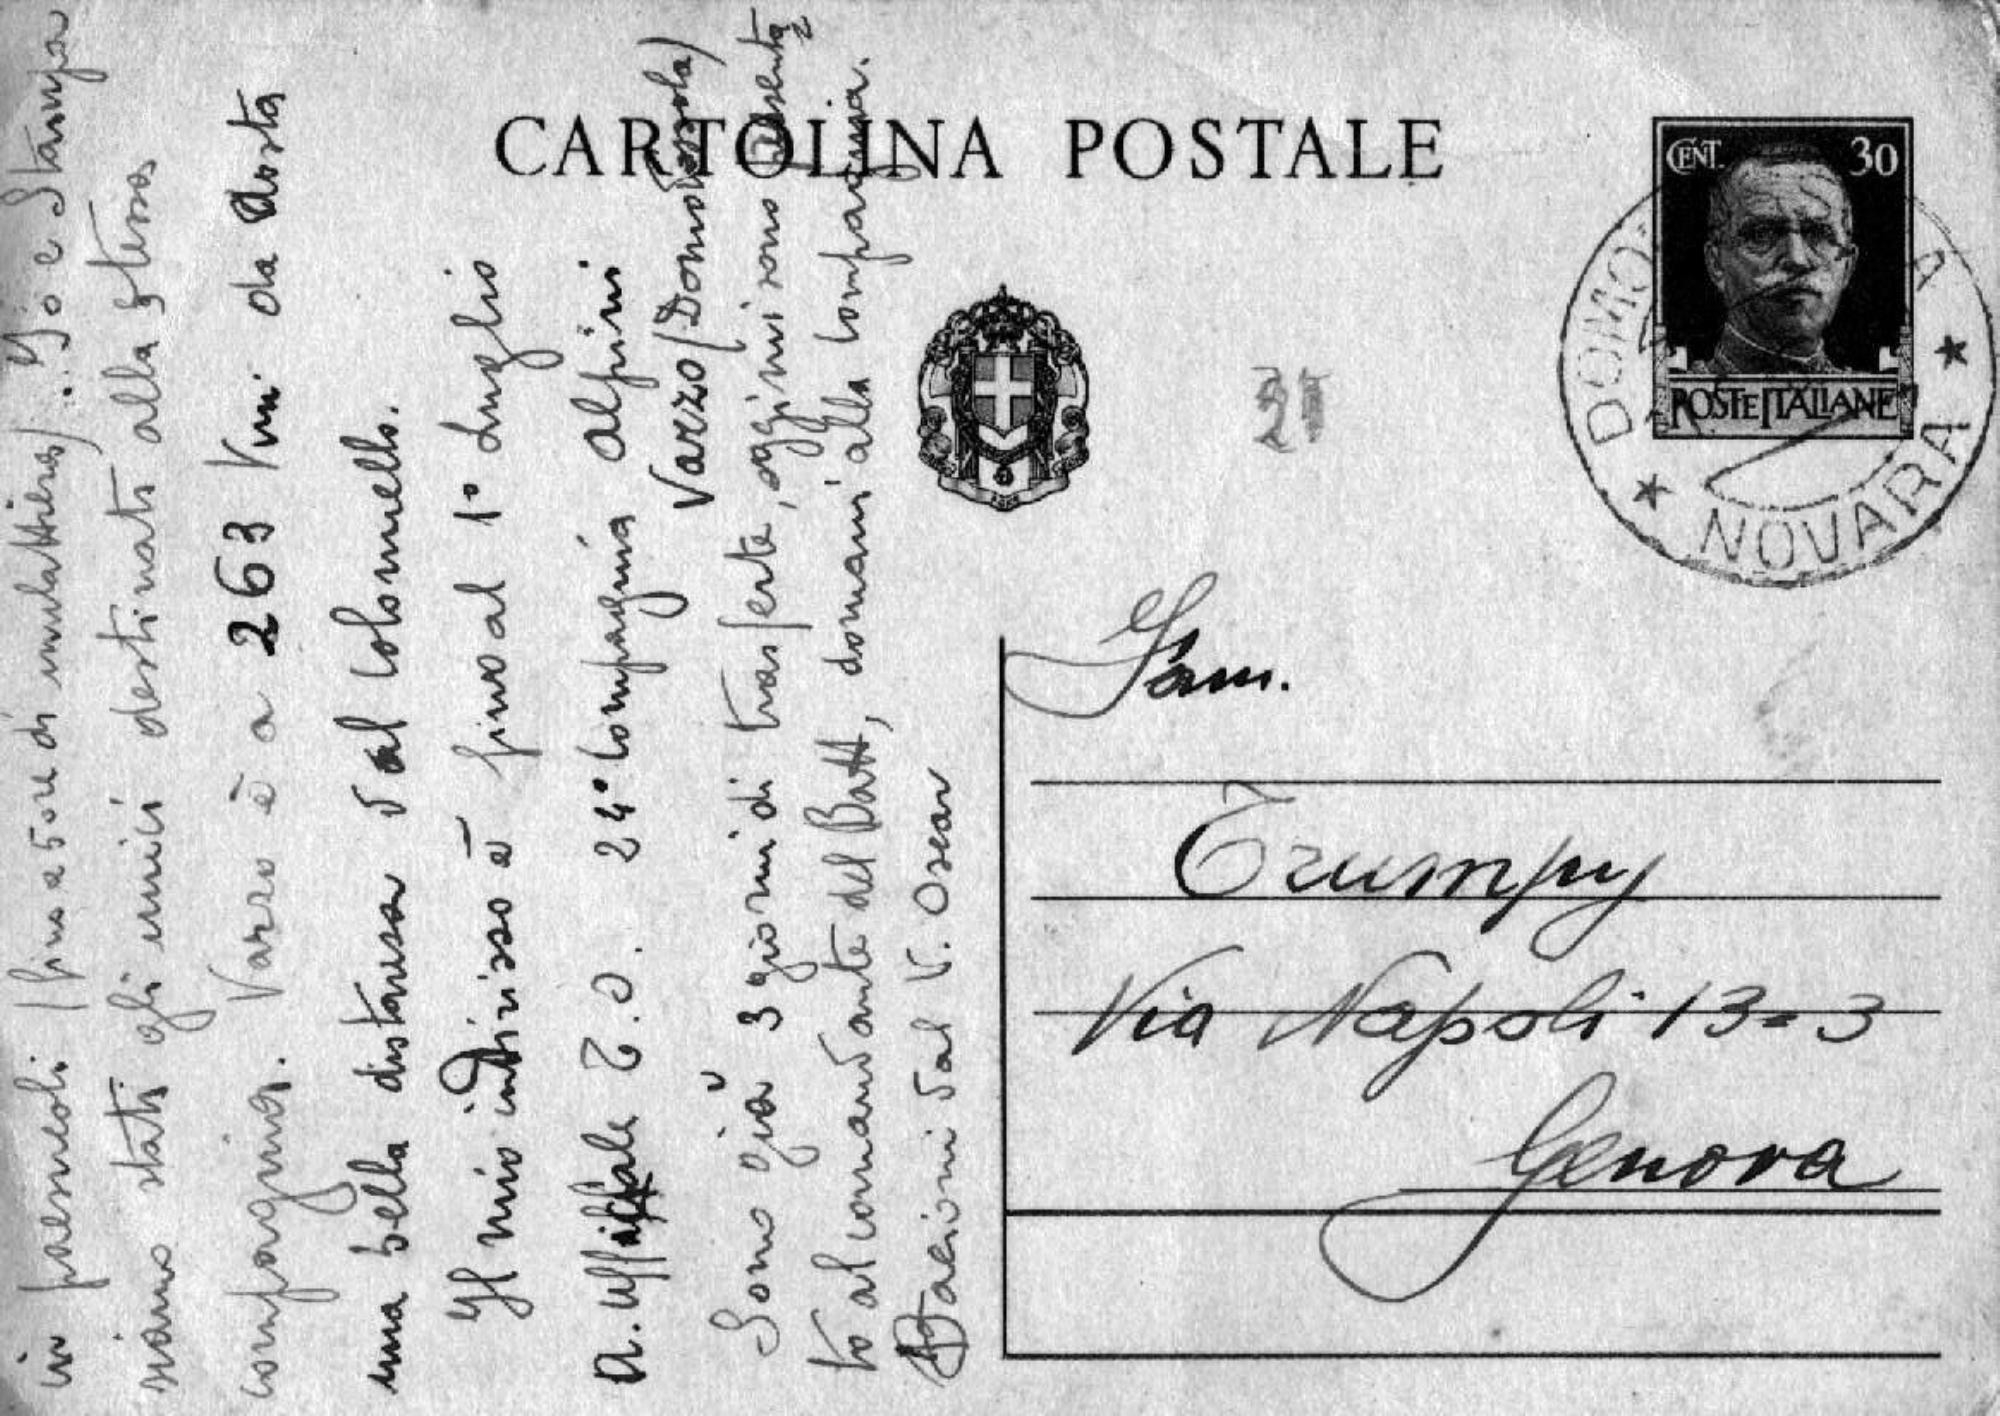 CARTOLINA POSTALE
CENT. 30
POSTE ITALIANE
DOMO A
NOVARA
Fam.
Trumpy
Via Napoli 13=3
Genova
in paesucoli (fino a 50 di mulattiera)... Io e Stampa
siamo stati gli unici destinati alla stessa
compagnia. Varzo è a 263 Km. da Aosta
una bella distanza dal Colonnello.
Il mio indirizzo è fino al 1° Luglio
A. Ufficiale T.O. 24° Compagnia Alpini
Varzo (Domodossola)
Sono già 3 giorni di trasferte, oggi mi sono presenta
to al comandante del Batt, domani alla compagnia.
Bacioni dal V. Oscar